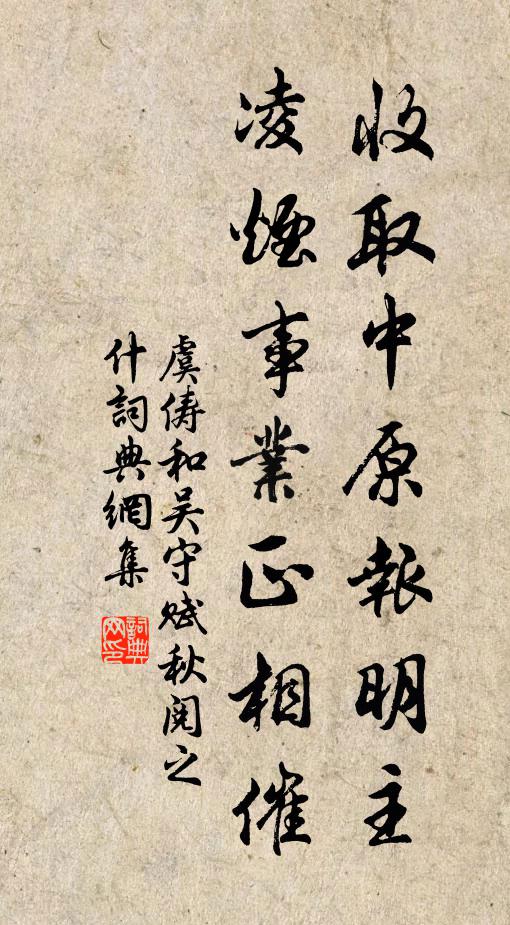 收取中原報明主
凌煙事業正相催
虞儔和吴守賦秋閱之
什詞典網集
詞典
网印